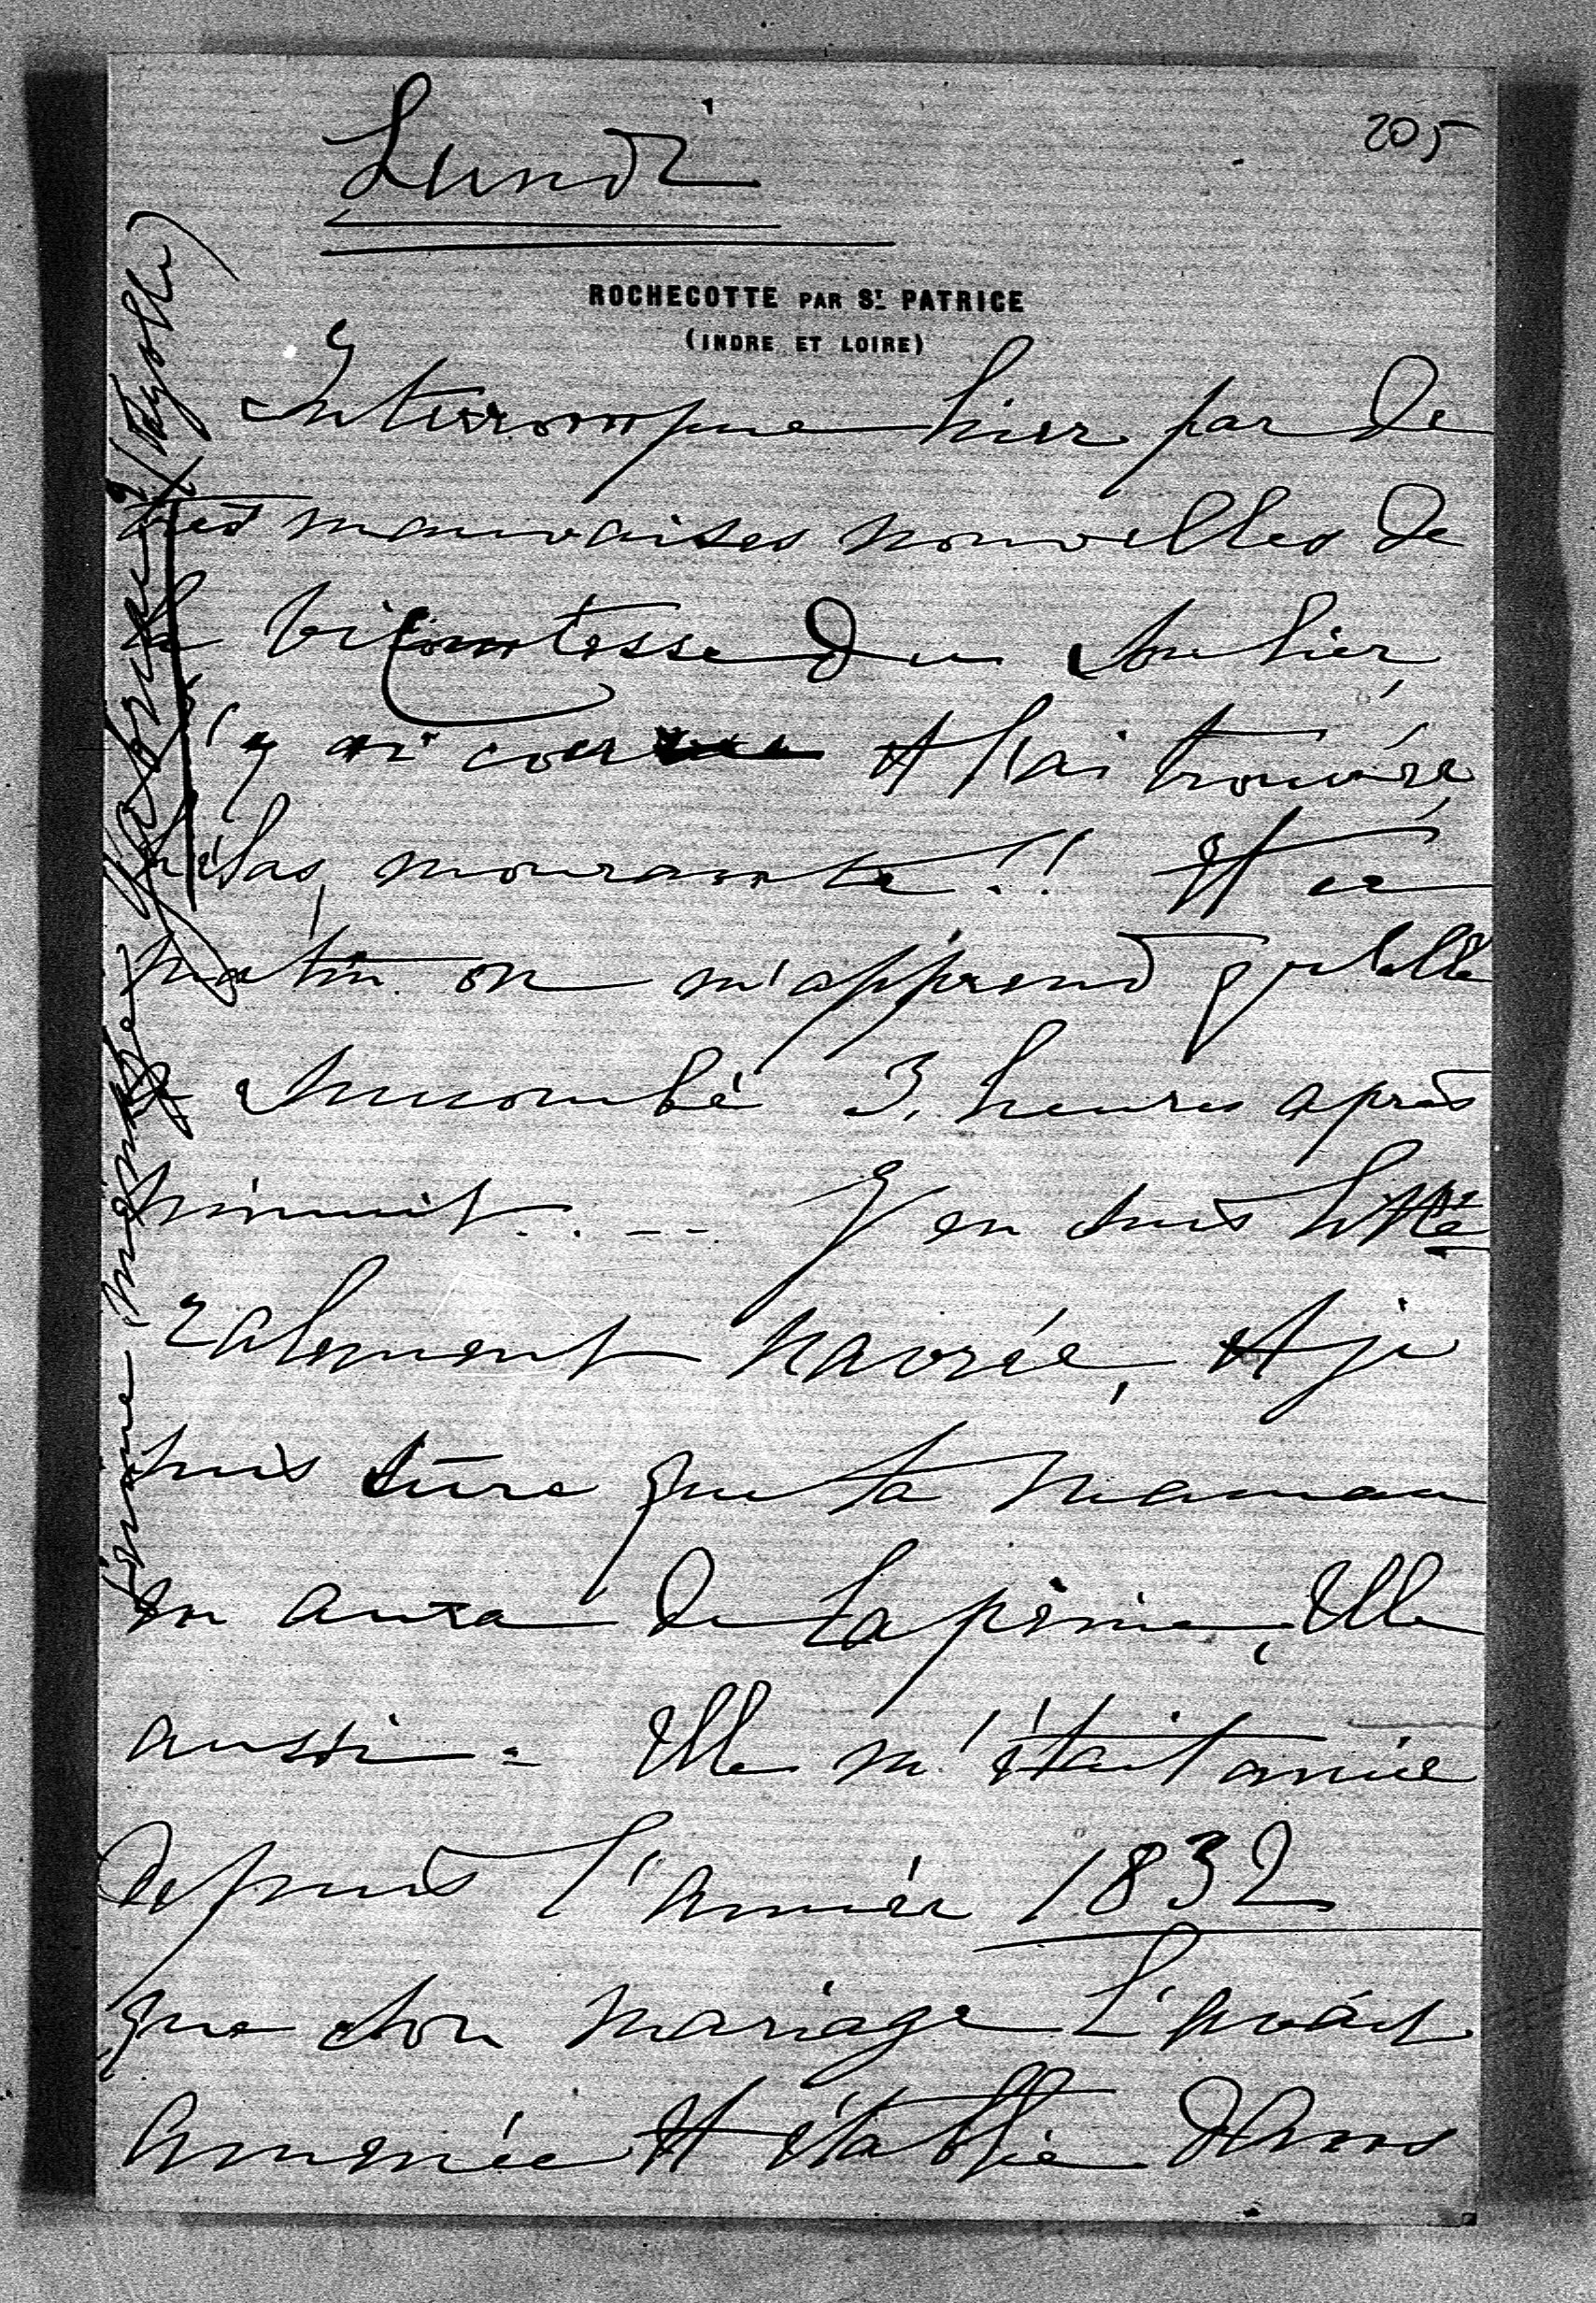 205
Lundi
ROCHECOTTE PAR ST PATRICE
(INDRE ET LOIRE)
Interrompue hier par de
très mauvaises nouvelles de
la Vicomtesse du Soulier,
j'y ai couru et l'ai trouvée
hélas, mourante!! Et ce
matin on m'apprend qu'elle
a succombé 3 heures après
minuit..... J'en suis litté
ralement navrée, et je
suis sûre que ta maman
en aura de la peine, Elle
aussi - Elle m'était amie
depuis l'année 1832
que son mariage l'avait
amenée et établie dans